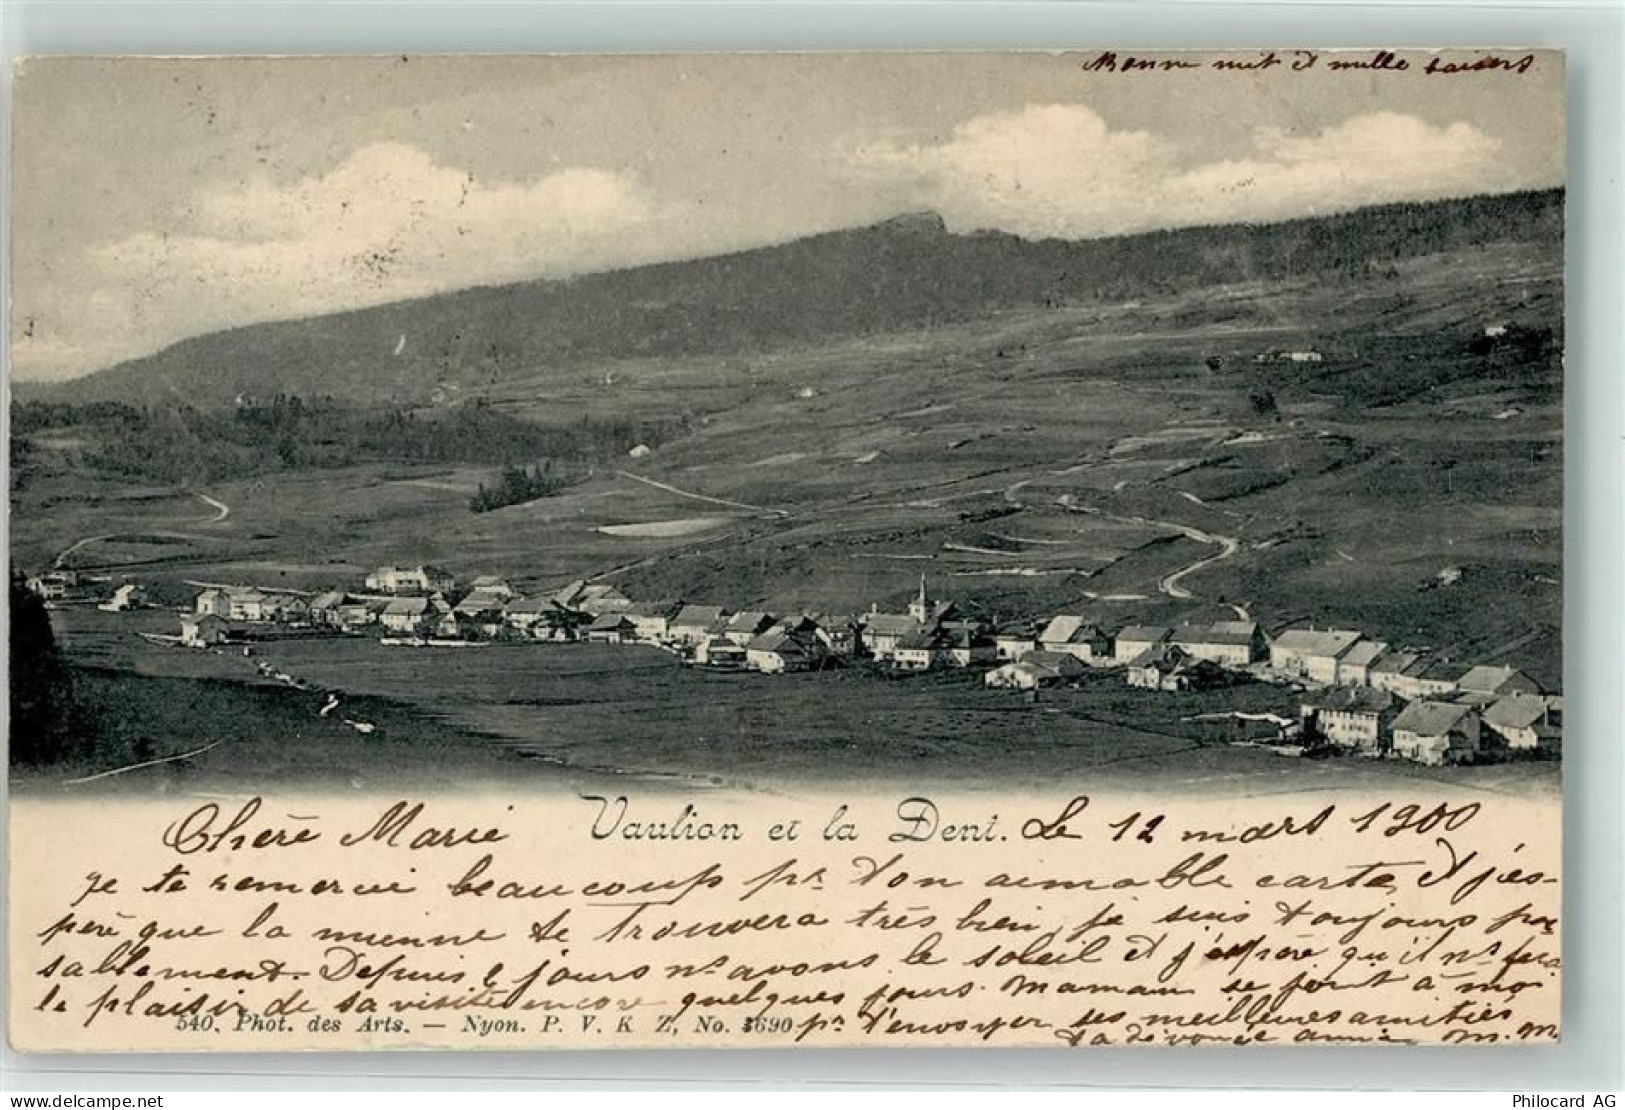 Bonne nuit et mille baisers
Vaulion et la Dent.
Chère Marie
Le 12 mars 1900
Je te remercie beaucoup pr ton aimable carte, et j'es-
père que la mienne te trouvera très bien, je suis toujours pas
sablement. Depuis 2 jours ns avons le soleil et j'espère qu'il ns fera
le plaisir de sa visite encore quelques jours. Maman se joint à moi
pr t'envoyer ses meilleures amitiés
Ta dévouée amie M. M.
540. Phot. des Arts. — Nyon. P. V. K Z, No. 3690
delcampe.net
Philocard AG